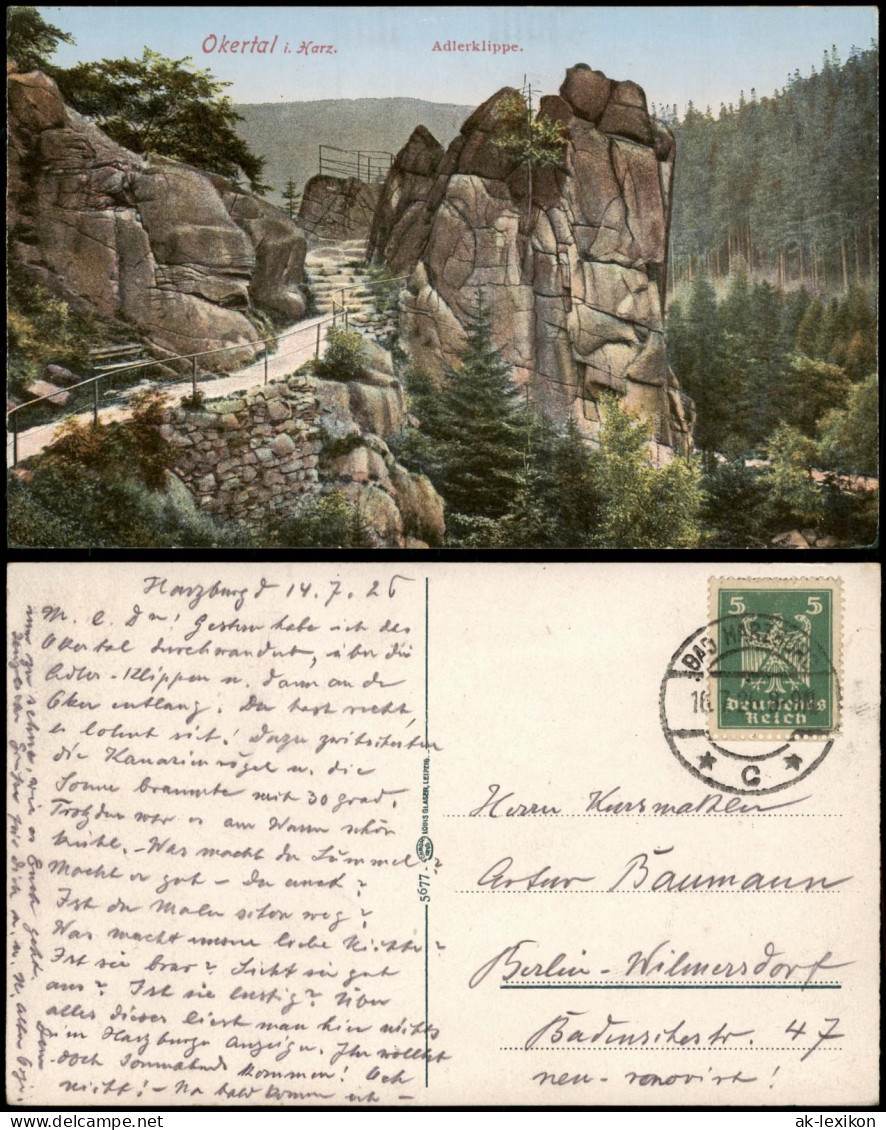 Okertal i. Harz.
Adlerklippe.
Harzburg d 14.7.26
M. l. Du! Gestern habe ich das
Okertal durchwandert, über die
Adler-Klippen u. dann an de
Oker entlang. Du hast recht,
es lohnt sich! Dazu zwitscherten
die Kanarienvögel u. die
Sonne brannte mit 30 grad.
Trotzdem war es am Wasser schön
kühl. - Was macht der Lümmel?
Macht er gut - Du auch?
Ist der Maler schon weg?
Was macht unsere liebe Nichte?
Ist sie brav? Sieht sie gut
aus? Ist sie lustig? Über
alles dieses liest man hier nichts
im Harzburger Anzeiger. Ihr wolltet
doch Sonnabend kommen! Och
nicht! - Na bald komme ich -
um zu sehen, wie es Euch geht.
5677
LOUIS GLASER, LEIPZIG.
5 5
Deutsches
Reich
BAD HARZBURG
16.7.26.8-9N
* C *
Herrn Kursmakler
Artur Baumann
Berlin-Wilmersdorf
Badenschestr. 47
neu-renoviert!
ak-lexikon